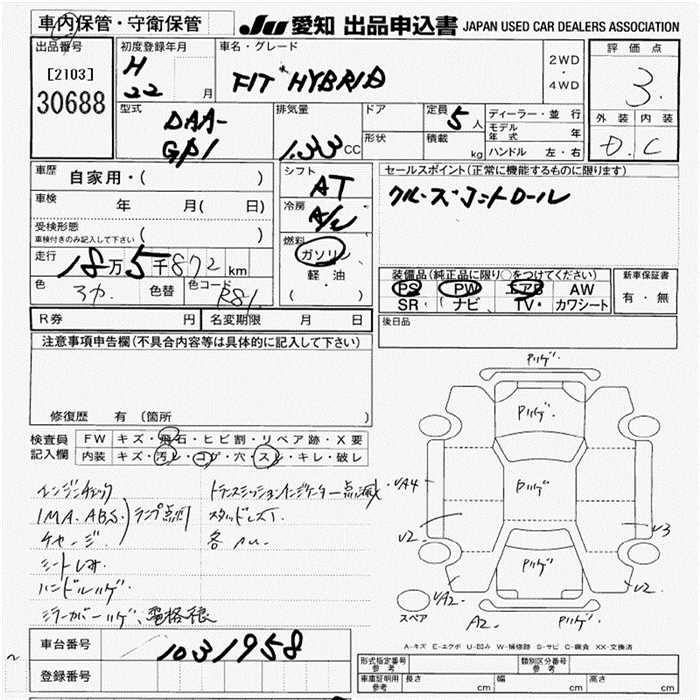 車内保管・守衛保管
JU 愛知 出品申込書 JAPAN USED CAR DEALERS ASSOCIATION
出品番号
[2103]
30688
初度登録年月
H
22 月
車名・グレード
FIT HYBRID
2WD
・
4WD
評価点
3
外装 内装
D C
型式
DAA-
GP1
排気量
1.33 CC
ドア
形状
定員
5人
積載
kg
ディーラー・並行
モデル年式 年
ハンドル 左・右
車歴
自家用・( )
車検
年 月( 日)
受検形態
車検付きのみ記入して下さい ( )
走行
18万5千872km
色
色替
色コード
シフト
AT
冷房
A/C
燃料
ガソリン
軽・油
( )
セールスポイント(正常に機能するものに限ります)
クルーズコントロール
装備品(純正品に限り○をつけてください)
PS PW エアB AW
SR ナビ TV・ カワシート
新車保証書
有・無
R券 円
名変期限 月 日
後日品
注意事項申告欄(不具合内容等は具体的に記入して下さい)
修復歴 有(箇所 )
検査員
記入欄
FW キズ・飛石・ヒビ割・リペア跡・X要
内装 キズ・汚レ・コゲ・穴・スレ・キレ・破レ
エンジンチェック
IMA.ABS.)ランプ点灯
チャージ
ハンドルハゲ
ミラーカバーハゲ、電格
トランスミッションインジケーター点滅
スタッドレス
ハゲ
ハゲ
ハゲ
ハゲ
ハゲ
A4
U2
U3
U2
A2
ハゲ
スペア
A-キズ E-エクボ U-凹み W-補修跡 S-サビ C-腐食 XX-交換済
車台番号
1031958
登録番号
形式指定番号
参考
類別区分番号
参考
車庫証明用
参考
長さ cm
幅 cm
高さ cm